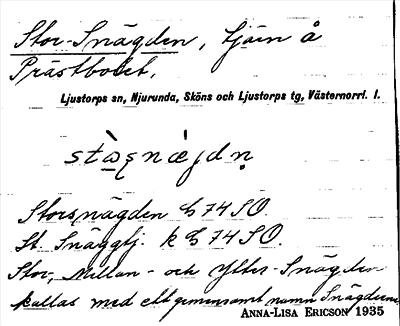 Stor-Snägden, tjärn å
Prästbolet.
Ljustorps sn, Njurunda, Sköns och Ljustorps tg, Västernorrl. l.
Storsnägden 74 SO.
St. Snäggtj. k 74 SO.
Stor-, Mellan- och Ytter-Snägden
kallas med ett gemensamt namn Snägderna
ANNA-LISA ERICSON 1935